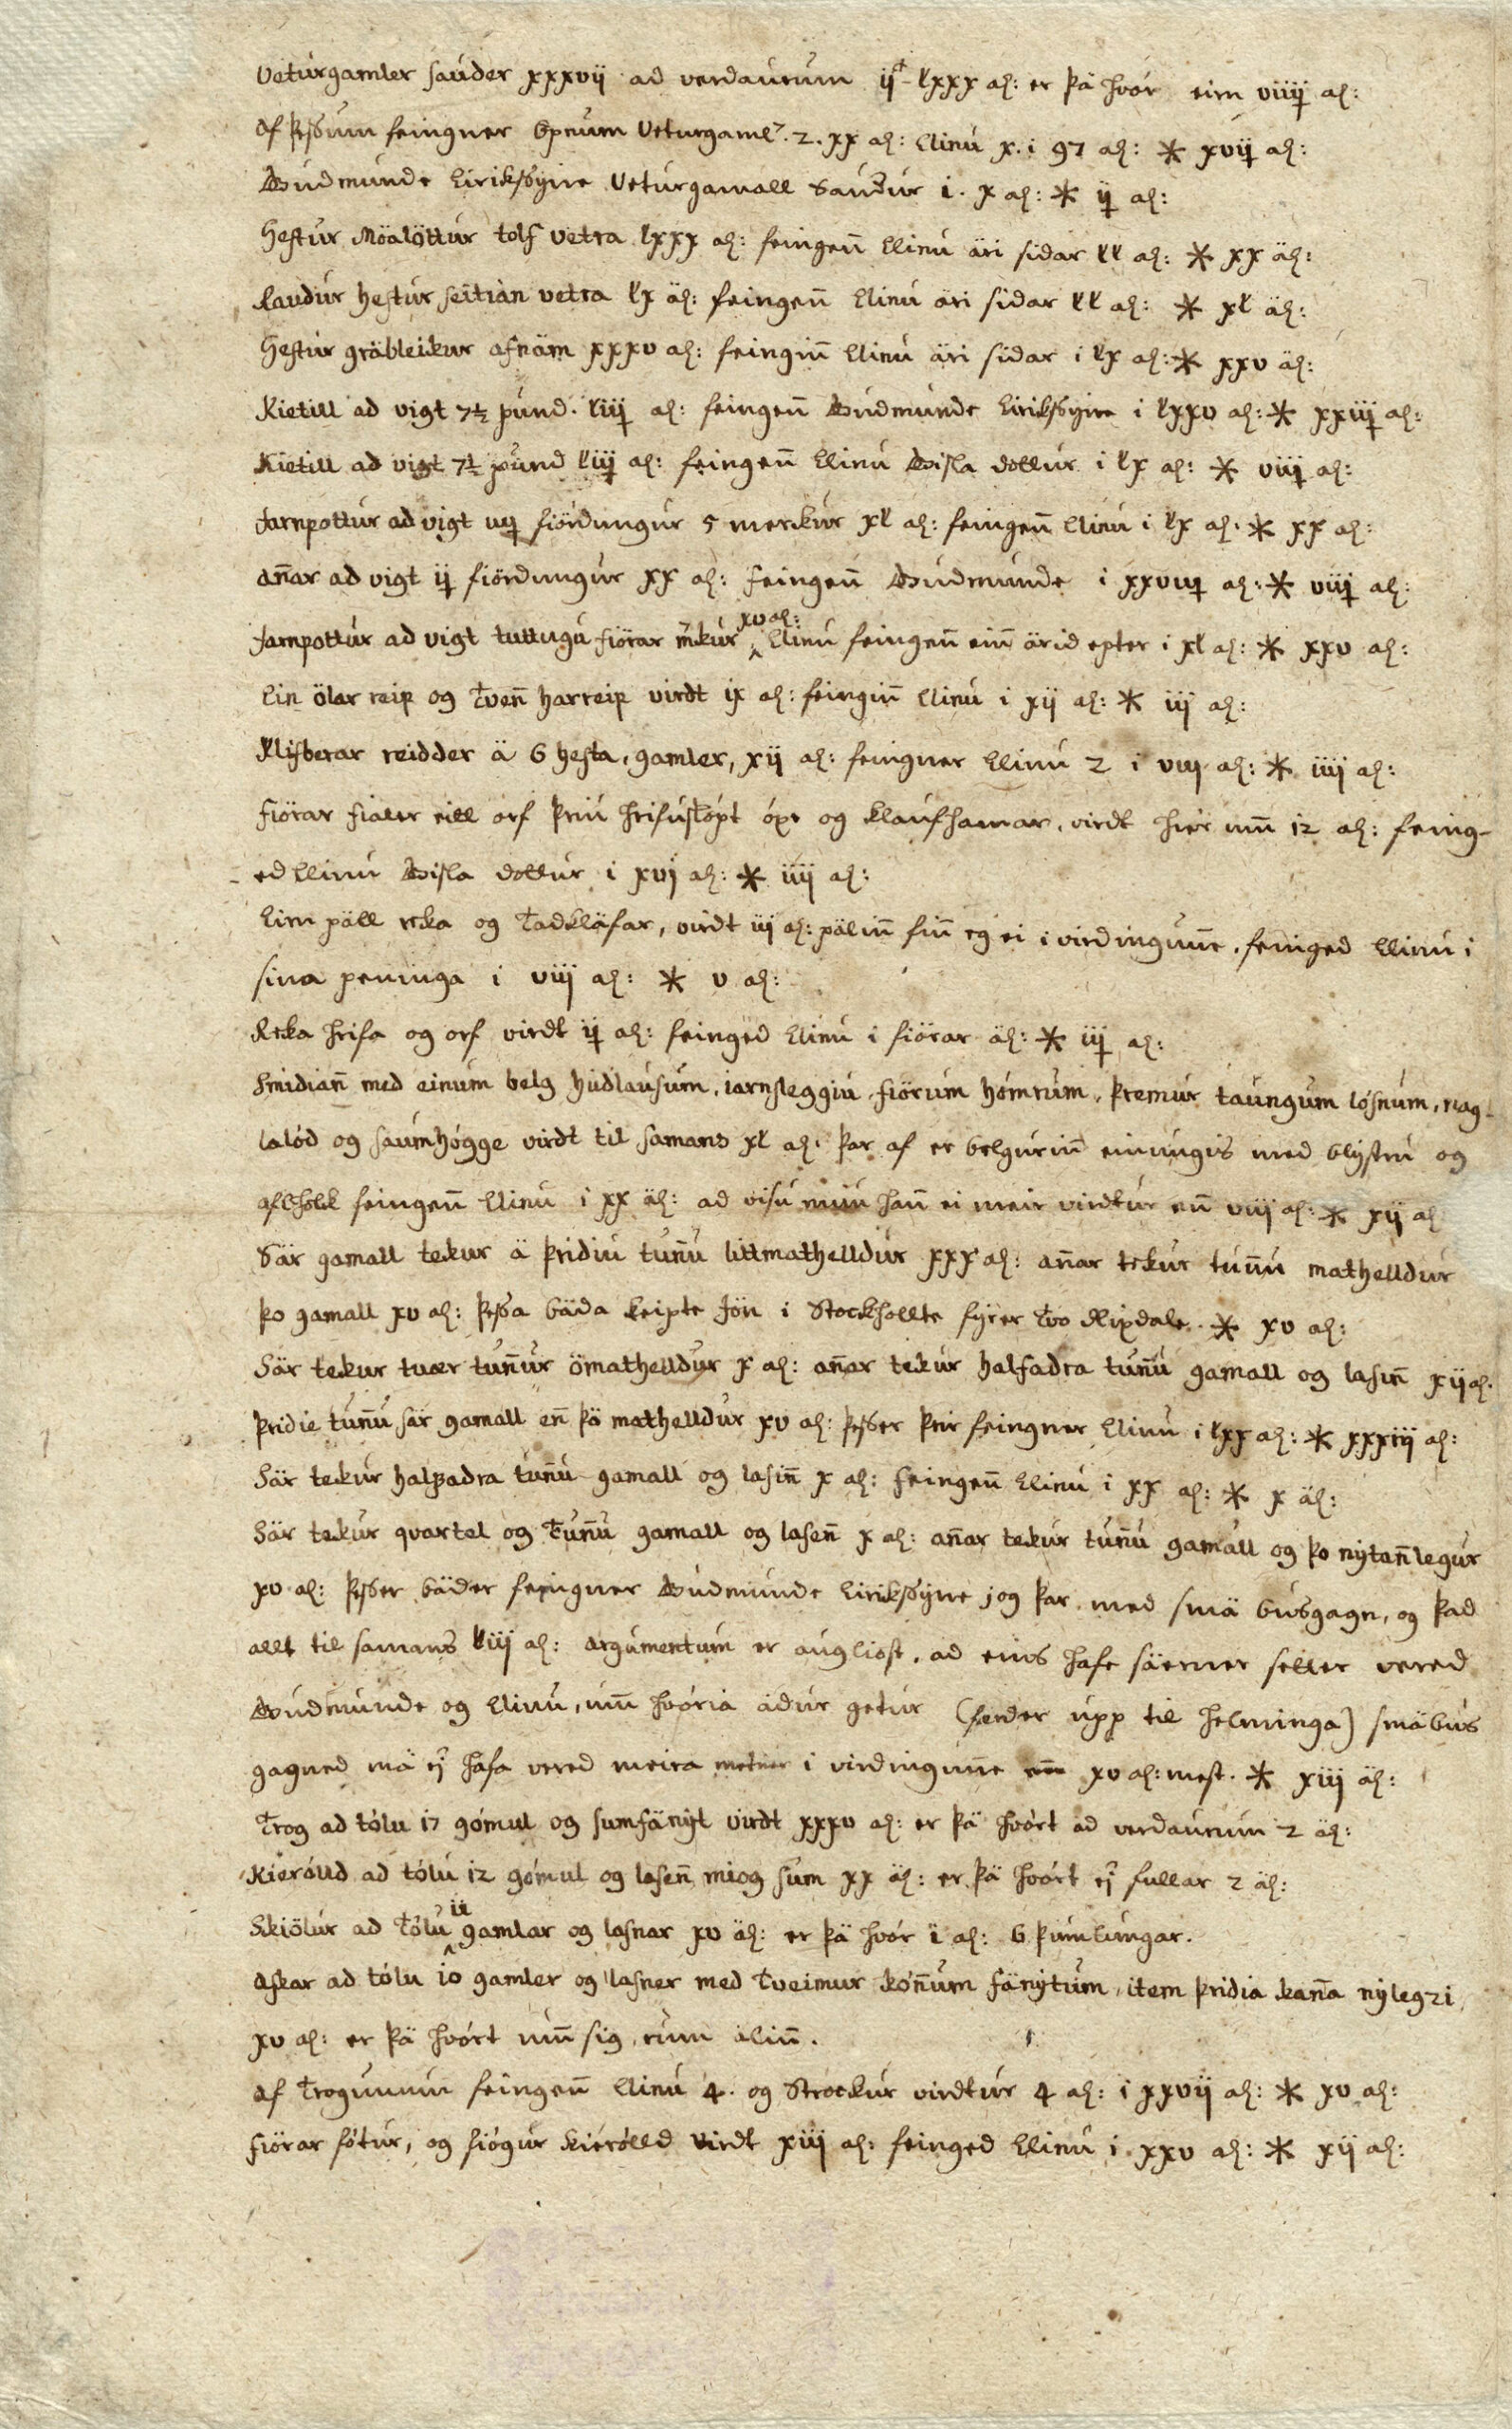 Veturgamler sauder xxxvij ad verdaurum ijc lxxx al: er þä hvór eirn viiij al:
Af þessum feingner Opnum Veturgaml. 2. xx al: Elinu x. i 97 al: * xvij al:
Gudmunde Eirikssyne Veturgamall Saudur i. x al: * ij al:
Hestur Möalöttur tolf vetra lxxx al: feingenn Elinu äri sidar ll al: * xx äl:
Raudur hestur seitian vetra lx äl: feingenn Elinu äri sidar ll al: * xl äl:
Hestur gräbleikur afnäm xxxv al: feinginn Elinu äri sidar i lx al: * xxv äl:
Kietill ad vigt 7½ pund. liij al: feingenn Gudmunde Eirikssyne i lxxv al: * xxiij al:
Kietill ad vigt 7½ pund liij al: feingenn Elinu Gisla dottur i lx al: * viij al:
Jarnpottur ad vigt iiij fiördungur 5 merkur xl al: feingenn Elinu i lx al. * xx al:
Annar ad vigt ij fiördungur xx al: feingenn Gudmunde i xxviij al: * viij al:
Jarnpottur ad vigt tuttugu fiörar mkur xv al: Elinu feingenn einn ärid epter i xl al: * xxv al:
Ein ölar reip og tvenn harreip virdt ix al: feinginn Elinu i xij al: * iij al:
Klifberar reidder ä 6 hesta, gamler, xij al: feingner Elinu 2 i viij al: * iiij al:
Fiörar fialer eitt orf þriu hrifusköpt öxe og klaufhamar, virdt hier um 12 al: feing-
ed Elinu Gisla dottur i xvj al: * iiij al:
Eirn päll reka og tadkläfar, virdt iij al: pälinn finn eg ei i virdingunne. feinged Elinu i
sina peninga i viij al: * v al:
Reka hrifa og orf virdt ij al: feinged Elinu i fiörar äl: * iij al:
Smidiann med einum belg hudlausum, iarnsleggiu, fiörum hömrum, þremur taungum lösnum, nag-
lalöd og saumhögge virdt til samans xl al. þar af er belgurinn einungis med blijstru og
aflhólk feingenn Elinu i xx äl: ad visu mun hann ei meir virdtur enn viij al: * xij al
Sär gamall tekur ä þridiu tunnu littmathelldur xxx al: annar tekur tunnu mathelldur
þo gamall xv al: þessa bäda keipte Jön i Stockhollte fyrer tvo Rixdale. * xv al:
Sär tekur tvær tunnur ömathelldur x al: annar tekur halfadra tunnu gamall og lasinn xij al.
þridie tunnu sär gamall enn þä mathelldur xv al: þesser þrir feingner Elinu i lxx al: * xxxiij al:
Sär tekur halfadra tunnu gamall og lasinn x al: feingenn Elinu i xx al: * x äl:
Sär tekur qvartel og tunnu gamall og lasenn x al: annar tekur tunnu gamall og þo nytannlegur
xv al: þesser bäder feingner Gudmunde Eirikssyne jog þar med smä busgagn, og þad
allt til samans liij al: argumentum er augliost, ad eins hafe säerner setter vered
Gudmunde og Elinu, um hvöria ädur getur (færder upp til helminga) smäbus
gagned mä ej hafa vered meira metner i virdingunne enn xv al: mest. * xiij äl:
Trog ad tölu 17 gömul og sum fänyt virdt xxxv al: er þä hvört ad verdaurum 2 äl:
Kierölld ad tölu 12 gömul og lasenn miog sum xx äl: er þä hvört ej fullar 2 äl:
Skiölur ad tölu ii gamlar og lasnar xv äl: er þä hvör i al: 6 þumlungar.
Askar ad tölu 10 gamler og lasner med tveimur könnum fänytum, item þridia kanna nylegri
xv al: er þä hvört um sig rum älinn.
Af trogunum feingenn Elinu 4. og Strockur virdtur 4 al: i xxvij al: * xv al:
Fiörar fötur, og fiögur kierölld virdt xiij al: feinged Elinu i xxv al: * xij al: